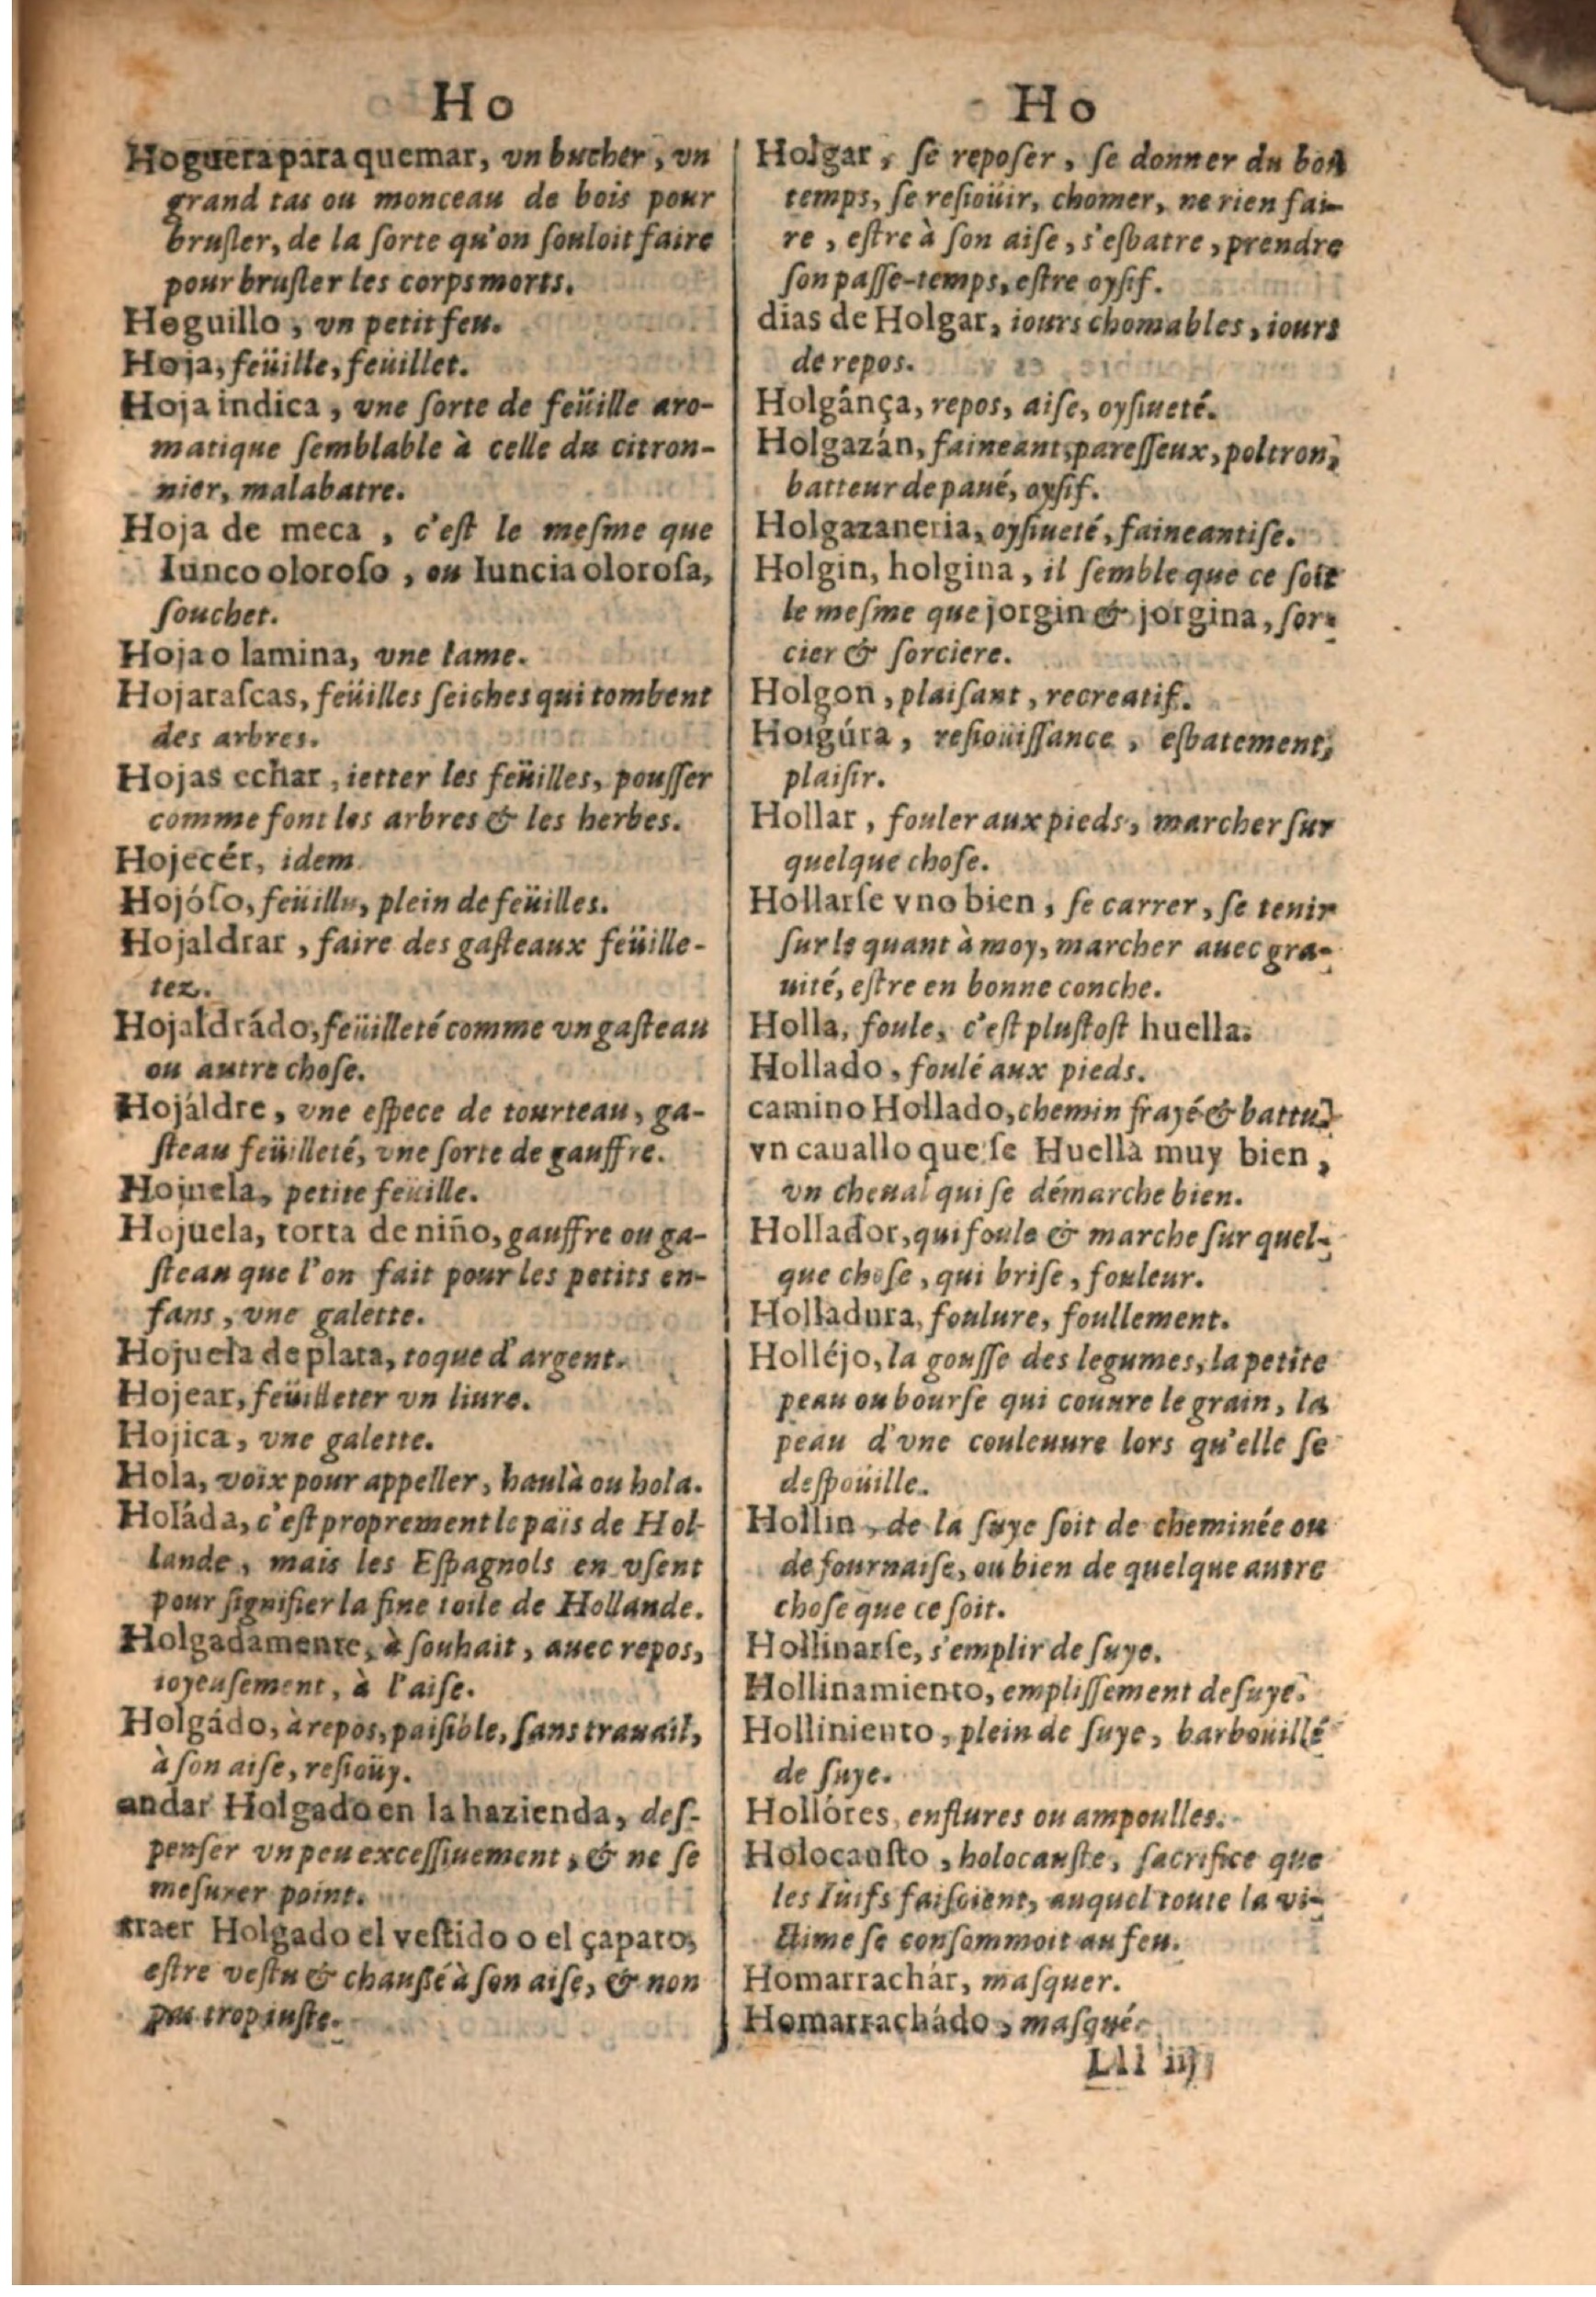 Ho
Hoguera para quemar, vn bucher, vn
grand tas ou monceau de bois pour
bruſler, de la ſorte qu'on ſouloit faire
pour bruſler les corps morts.
Hoguillo, vn petit feu.
Hoja, feüille, feüillet.
Hoja indica, vne ſorte de feüille aro-
matique ſemblable à celle du citron-
nier, malabatre.
Hoja de meca, c'eſt le meſme que
Iunco oloroſo, ou Iuncia oloroſa,
ſouchet.
Hoja o lamina, vne lame.
Hojaraſcas, feüilles ſeiches qui tombent
des arbres.
Hojas echar, ietter les feüilles, pouſſer
comme font les arbres & les herbes.
Hojecér, idem.
Hojóſo, feüillu, plein de feüilles.
Hojaldrar, faire des gaſteaux feüille-
tez.
Hojaldrádo, feüilleté comme vn gaſteau
ou autre choſe.
Hojáldre, vne eſpece de tourteau, ga-
ſteau feüilleté, vne ſorte de gauffre.
Hojuela, petite feuille.
Hojuela, torta de niño, gauffre ou ga-
ſteau que l'on fait pour les petits en-
fans, vne galette.
Hojuela de plata, toque d'argent.
Hojear, feüilleter vn liure.
Hojica, vne galette.
Hola, voix pour appeller, haulà ou hola.
Holáda, c'eſt proprement le païs de Hol-
lande, mais les Eſpagnols en vſent
pour ſignifier la fine toile de Hollande.
Holgadamente, à ſouhait, auec repos,
ioyeuſement, à l'aiſe.
Holgádo, à repos, paiſible, ſans trauail,
à ſon aiſe, reſioüy.
andar Holgado en la hazienda, deſ-
penſer vn peu exceſſiuement, & ne ſe
meſurer point.
traer Holgado el veſtido o el çapato,
eſtre veſtu & chauſſé à ſon aiſe, & non
pas trop iuſte.
Ho
Holgar, ſe repoſer, ſe donner du bon
temps, ſe reſioüir, chomer, ne rien fai-
re, eſtre à ſon aiſe, s'eſbatre, prendre
ſon paſſe-temps, eſtre oyſif.
dias de Holgar, iours chomables, iours
de repos.
Holgânça, repos, aiſe, oyſiueté.
Holgazán, faineant, pareſſeux, poltron,
batteur de paué, oyſif.
Holgazaneria, oyſiueté, faineantiſe.
Holgin, holgina, il ſemble que ce ſoit
le meſme que jorgin & jorgina, ſor-
cier & ſorciere.
Holgon, plaiſant, recreatif.
Holgúra, reſioüiſſance, eſbatement,
plaiſir.
Hollar, fouler aux pieds, marcher ſur
quelque choſe.
Hollarſe vno bien, ſe carrer, ſe tenir
ſur le quant à moy, marcher auec gra-
uité, eſtre en bonne conche.
Holla, foule, c'eſt pluſtoſt huella.
Hollado, foulé aux pieds.
camino Hollado, chemin frayé & battu.
vn cauallo que ſe Huella muy bien,
vn cheual qui ſe démarche bien.
Hollador, qui foule & marche ſur quel-
que choſe, qui briſe, fouleur.
Holladura, foulure, foullement.
Holléjo, la gouſſe des legumes, la petite
peau ou bourſe qui couure le grain, la
peau d'vne couleuure lors qu'elle ſe
deſpoüille.
Hollin, de la ſuye ſoit de cheminée ou
de fournaiſe, ou bien de quelque autre
choſe que ce ſoit.
Hollinarſe, s'emplir de ſuye.
Hollinamiento, empliſſement de ſuye.
Holliniento, plein de ſuye, barboüillé
de ſuye.
Hollóres, enflures ou ampoulles.
Holocauſto, holocauſte, ſacrifice que
les Iuifs faiſoient, auquel toute la vi-
ctime ſe conſommoit au feu.
Homarrachár, maſquer.
Homarrachádo, maſqué.
Lll iij